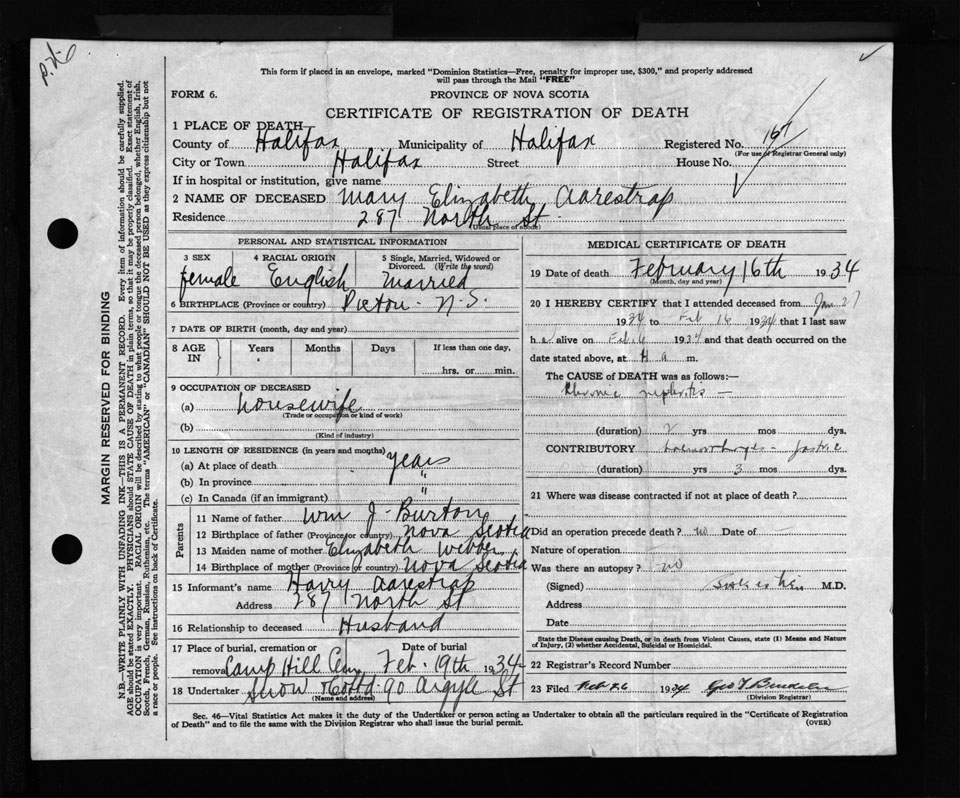 This form if placed in an envelope, marked "Dominion Statistics—Free, penalty for improper use, $300," and properly addressed
will pass through the Mail "FREE"
FORM 6.
PROVINCE OF NOVA SCOTIA
CERTIFICATE OF REGISTRATION OF DEATH
1 PLACE OF DEATH
County of Halifax Municipality of Halifax Registered No.
(For use of Registrar General only)
City or Town Halifax Street House No.
If in hospital or institution, give name
2 NAME OF DECEASED Mary Elizabeth Aarestrap
Residence 287 North St.
(Usual place of abode)
PERSONAL AND STATISTICAL INFORMATION
3 SEX 4 RACIAL ORIGIN 5 Single, Married, Widowed or Divorced. (Write the word)
female English Married
6 BIRTHPLACE (Province or country) Pictou - N.S.
7 DATE OF BIRTH (month, day and year)
8 AGE IN Years Months Days If less than one day,
hrs. or min.
9 OCCUPATION OF DECEASED
(a) Housewife
(Trade or occupation or kind of work)
(b)
(Kind of industry)
10 LENGTH OF RESIDENCE (in years and months)
(a) At place of death years
(b) In province "
(c) In Canada (if an immigrant) "
Parents
11 Name of father Wm J. Burton
12 Birthplace of father (Province or country) Nova Scotia
13 Maiden name of mother Elizabeth Webber
14 Birthplace of mother (Province or country) Nova Scotia
15 Informant's name Harry Aarestrap
Address 287 North St
16 Relationship to deceased Husband
17 Place of burial, cremation or Date of burial
removal Camp Hill Cem Feb. 19th 1934
18 Undertaker Snow & Co Ltd 90 Argyle St
(Name and address)
MEDICAL CERTIFICATE OF DEATH
19 Date of death February 16th 1934
(Month, day and year)
20 I HEREBY CERTIFY that I attended deceased from Jan 27
1934 to Feb 16 1934 that I last saw
h alive on Feb. 1934 and that death occurred on the
date stated above, at m.
The CAUSE of DEATH was as follows:—
Chronic nephritis —
(duration) 2 yrs mos dys.
CONTRIBUTORY haemorrhages - gastric
(duration) yrs 3 mos dys.
21 Where was disease contracted if not at place of death?
Did an operation precede death? no Date of —
Nature of operation
Was there an autopsy? no
(Signed) M.D.
Address
Date
State the Disease causing Death, or in death from Violent Causes, state (1) Means and Nature
of Injury, (2) whether Accidental, Suicidal or Homicidal.
22 Registrar's Record Number
23 Filed Feb 1934 Geo
(Division Registrar)
Sec. 46—Vital Statistics Act makes it the duty of the Undertaker or person acting as Undertaker to obtain all the particulars required in the "Certificate of Registration
of Death" and to file the same with the Division Registrar who shall issue the burial permit.
(OVER)
MARGIN RESERVED FOR BINDING
N.B.—WRITE PLAINLY WITH UNFADING INK—THIS IS A PERMANENT RECORD. Every item of information should be carefully supplied.
AGE should be stated EXACTLY. PHYSICIANS should STATE CAUSE OF DEATH in plain terms, so that it may be properly classified. Exact statement of
OCCUPATION is very important. RACIAL ORIGIN will be described by stating to what people or tongue the deceased person belonged, whether English, Irish,
Scotch, French, German, Russian, Ruthenian, etc. The terms "AMERICAN" or "CANADIAN" SHOULD NOT BE USED as they express citizenship but not
a race or people. See instructions on back of Certificate.